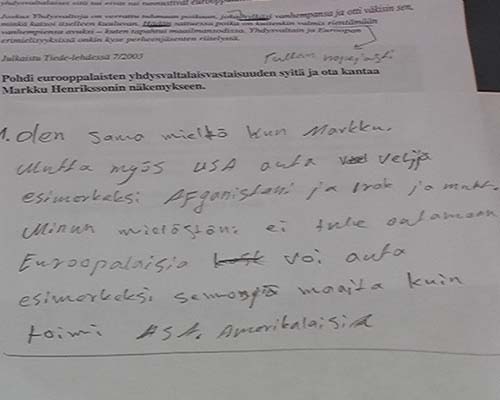 yhdysvaltalaiset
Joskus Yhdysvaltoja on verrattu tulisaan poikaan, joka vanhempansa ja otti väkisin sen,
minkä katsoi itselleen kuuluvan. sattuessa poika on kuitenkin valmis rientämään
vanhempiensa avuksi – kuten tapahtui maailmansodissa. Yhdysvaltain ja Euroopan
erimielisyyksissä onkin kyse perheenjäsenten riitelystä.
Julkaistu Tiede-lehdessä 7/2003
Tullan nopejasti
Pohdi eurooppalaisten yhdysvaltalaisvastaisuuden syitä ja ota kantaa
Markku Henrikssonin näkemykseen.
1. Olen sama mieltö kun Markku.
Mutta myös USA auta veljiä
esimerkeksi Afganistani ja Irak ja
Minun mielöstöni ei tule
Euroopalaisia voi auta
esimerkeksi maaita kuin
toimi USA. Amerikalaisia